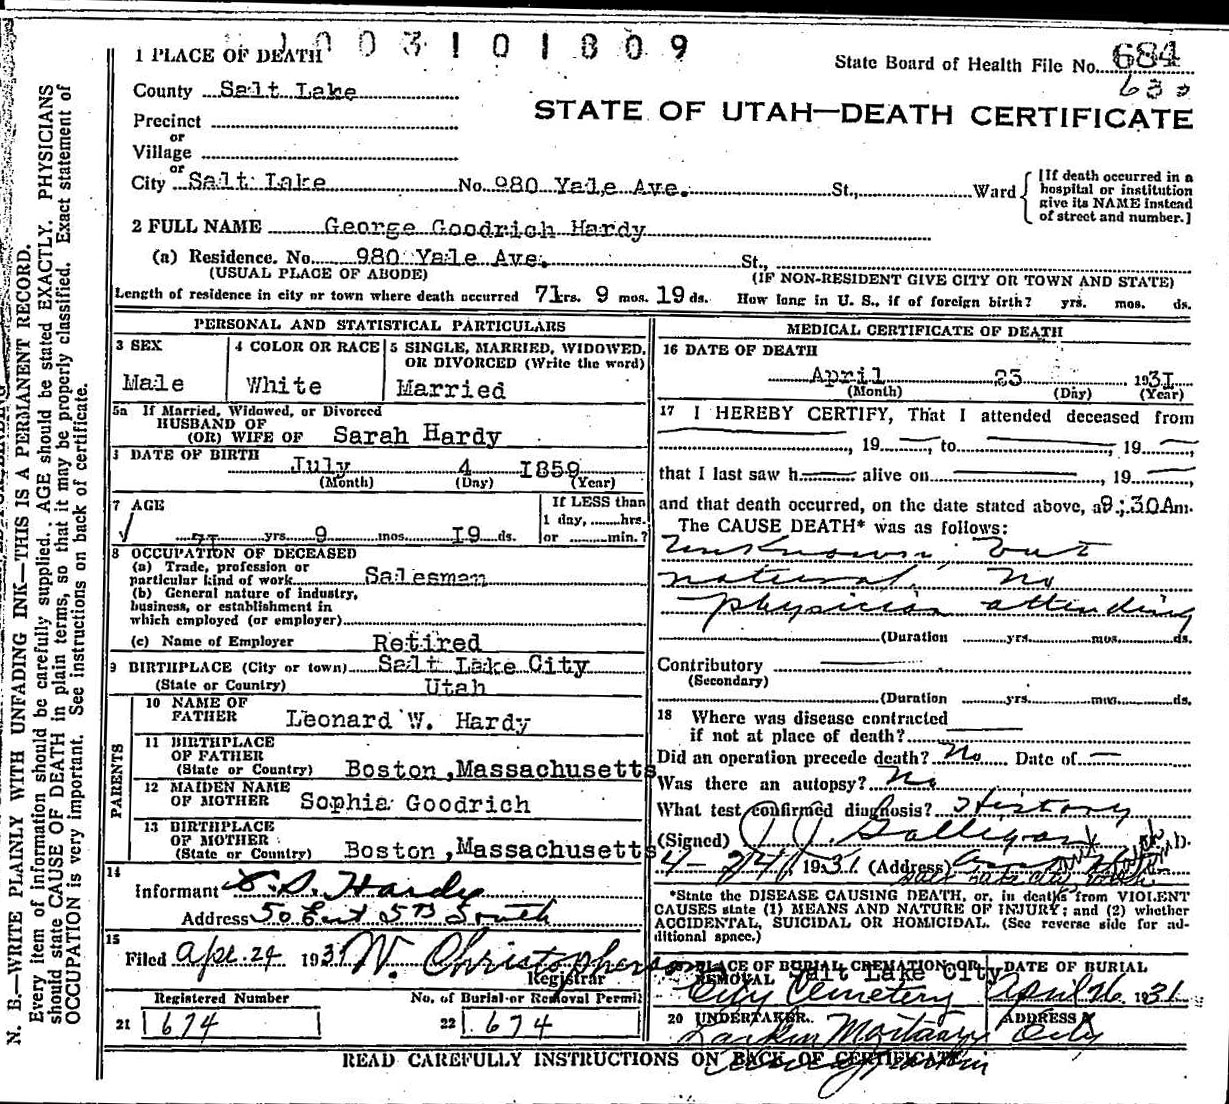 1003101809
1 PLACE OF DEATH
State Board of Health File No. 684
County Salt Lake
630
STATE OF UTAH—DEATH CERTIFICATE
Precinct
or
Village
or
City Salt Lake No. 980 Yale Ave. St., Ward
[If death occurred in a
hospital or institution
give its NAME instead
of street and number.]
2 FULL NAME George Goodrich Hardy
(a) Residence. No. 980 Yale Ave. St.,
(USUAL PLACE OF ABODE) (IF NON-RESIDENT GIVE CITY OR TOWN AND STATE)
Length of residence in city or town where death occurred 71 rs. 9 mos. 19 ds. How long in U. S., if of foreign birth? yrs. mos. ds.
PERSONAL AND STATISTICAL PARTICULARS
3 SEX
Male
4 COLOR OR RACE
White
5 SINGLE, MARRIED, WIDOWED,
OR DIVORCED (Write the word)
Married
5a If Married, Widowed, or Divorced
HUSBAND OF
(OR) WIFE OF Sarah Hardy
DATE OF BIRTH
July 4 1859
(Month) (Day) (Year)
7 AGE
71 yrs. 9 mos. 19 ds.
If LESS than
1 day, hrs.
or min.?
8 OCCUPATION OF DECEASED
(a) Trade, profession or
particular kind of work Salesman
(b) General nature of industry,
business, or establishment in
which employed (or employer)
(c) Name of Employer Retired
9 BIRTHPLACE (City or town) Salt Lake City
(State or Country) Utah
PARENTS
10 NAME OF
FATHER Leonard W. Hardy
11 BIRTHPLACE
OF FATHER
(State or Country) Boston, Massachusetts
12 MAIDEN NAME
OF MOTHER Sophia Goodrich
13 BIRTHPLACE
OF MOTHER
(State or Country) Boston, Massachusetts
14
Informant S. Hardy
Address 50 East 5th South
15
Filed Apr. 24 1931 W. Christopherson
Registrar
Registered Number
21 674
No. of Burial or Removal Permit
22 674
MEDICAL CERTIFICATE OF DEATH
16 DATE OF DEATH
April 23 1931
(Month) (Day) (Year)
17 I HEREBY CERTIFY, That I attended deceased from
, 19 , to , 19 ,
that I last saw h alive on , 19 ,
and that death occurred, on the date stated above, a 9:30 A m.
The CAUSE DEATH* was as follows:
Unknown but
natural. No
physician attending
(Duration yrs. mos. ds.
Contributory
(Secondary)
(Duration yrs. mos. ds.
18 Where was disease contracted
if not at place of death?
Did an operation precede death? No Date of —
Was there an autopsy? No
What test confirmed diagnosis? History
(Signed) J. J. Galligan D.
4-24 1931 (Address)
Salt Lake City, Utah
*State the DISEASE CAUSING DEATH, or, in deaths from VIOLENT
CAUSES state (1) MEANS AND NATURE OF INJURY; and (2) whether
ACCIDENTAL, SUICIDAL OR HOMICIDAL. (See reverse side for ad-
ditional space.)
PLACE OF BURIAL CREMATION OR
REMOVAL Salt Lake City
City Cemetery
DATE OF BURIAL
April 26 1931
20 UNDERTAKER
Larkin Mortuary
ADDRESS
City
READ CAREFULLY INSTRUCTIONS ON BACK OF CERTIFICATE
N. B.—WRITE PLAINLY WITH UNFADING INK—THIS IS A PERMANENT RECORD.
Every item of information should be carefully supplied. AGE should be stated EXACTLY. PHYSICIANS
should state CAUSE OF DEATH in plain terms, so that it may be properly classified. Exact statement of
OCCUPATION is very important. See instructions on back of certificate.